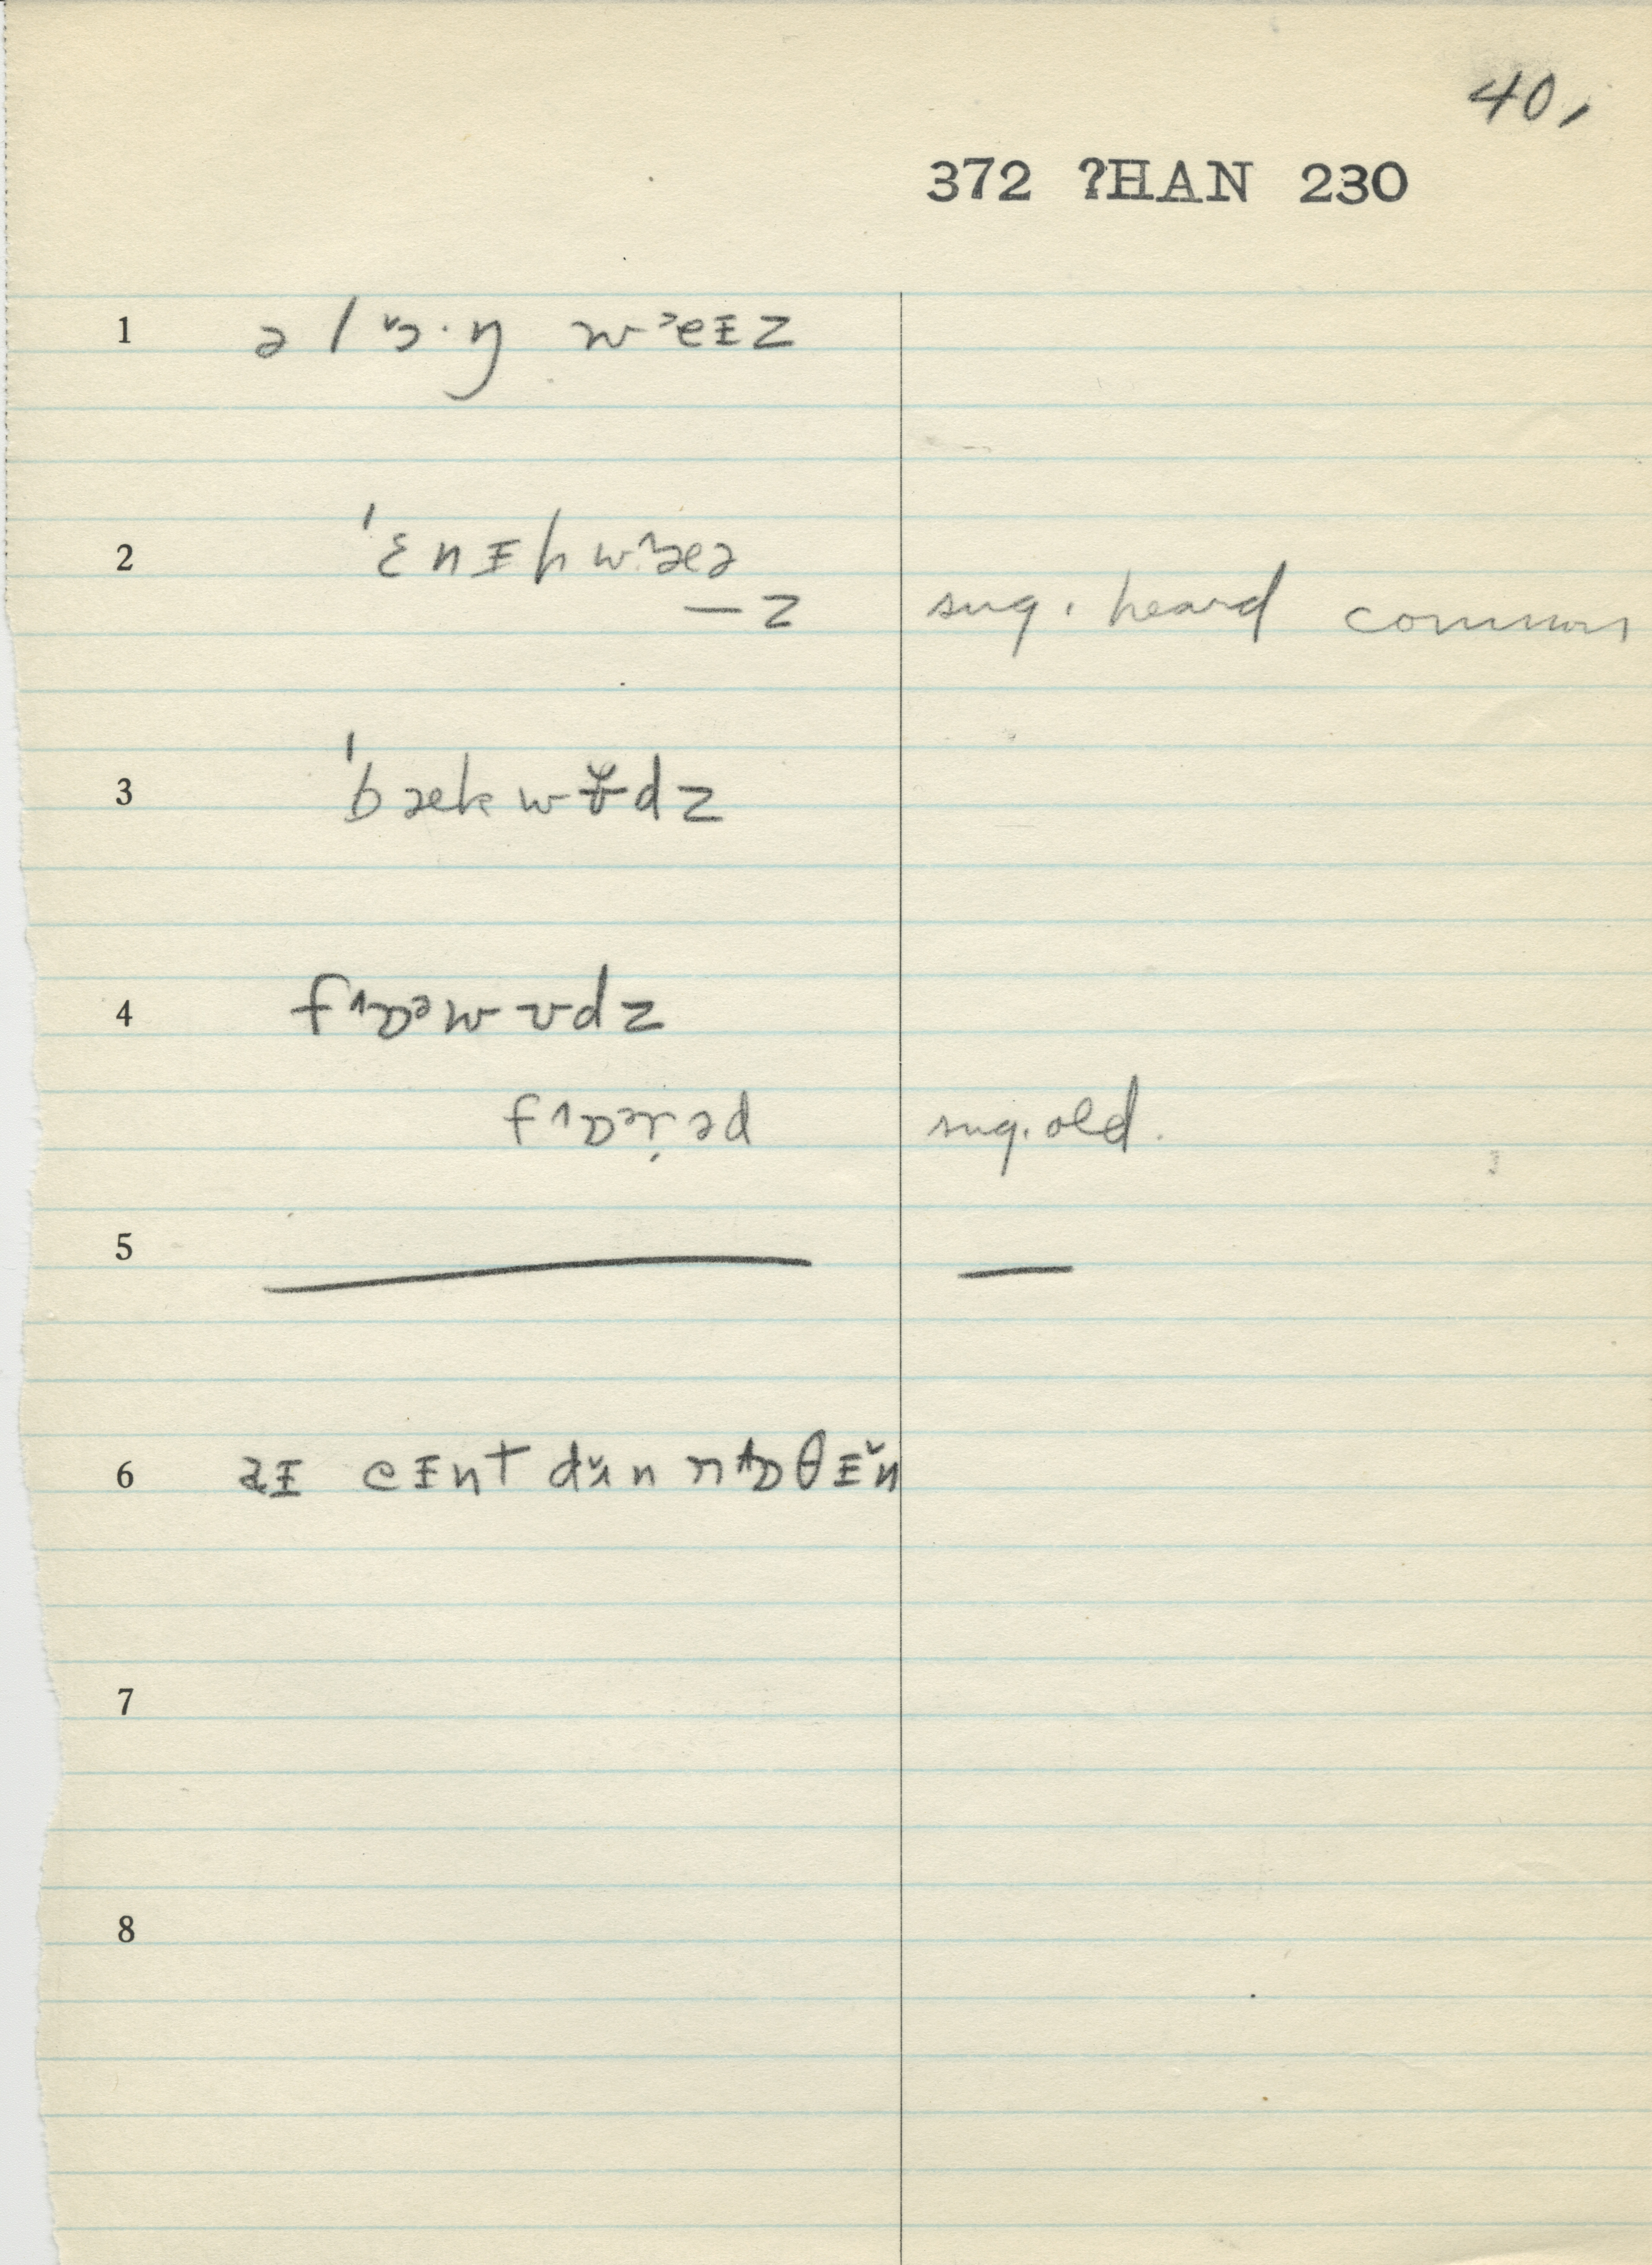 40,
372 ?HAN 230
1 ə lɔ̌·ŋ wᵊeɪz
2 ˈɛnɪh wæ˄ə
—z sug. heard common
3 ˈbækwɤ̆dz
4 f˄ɒᵊwɤdz
f˄ɒᵊɹ̣əd sug. old.
5 — —
6 aɪ eɪnt dʌ̆n n˄ɒθɪ̆n
7
8